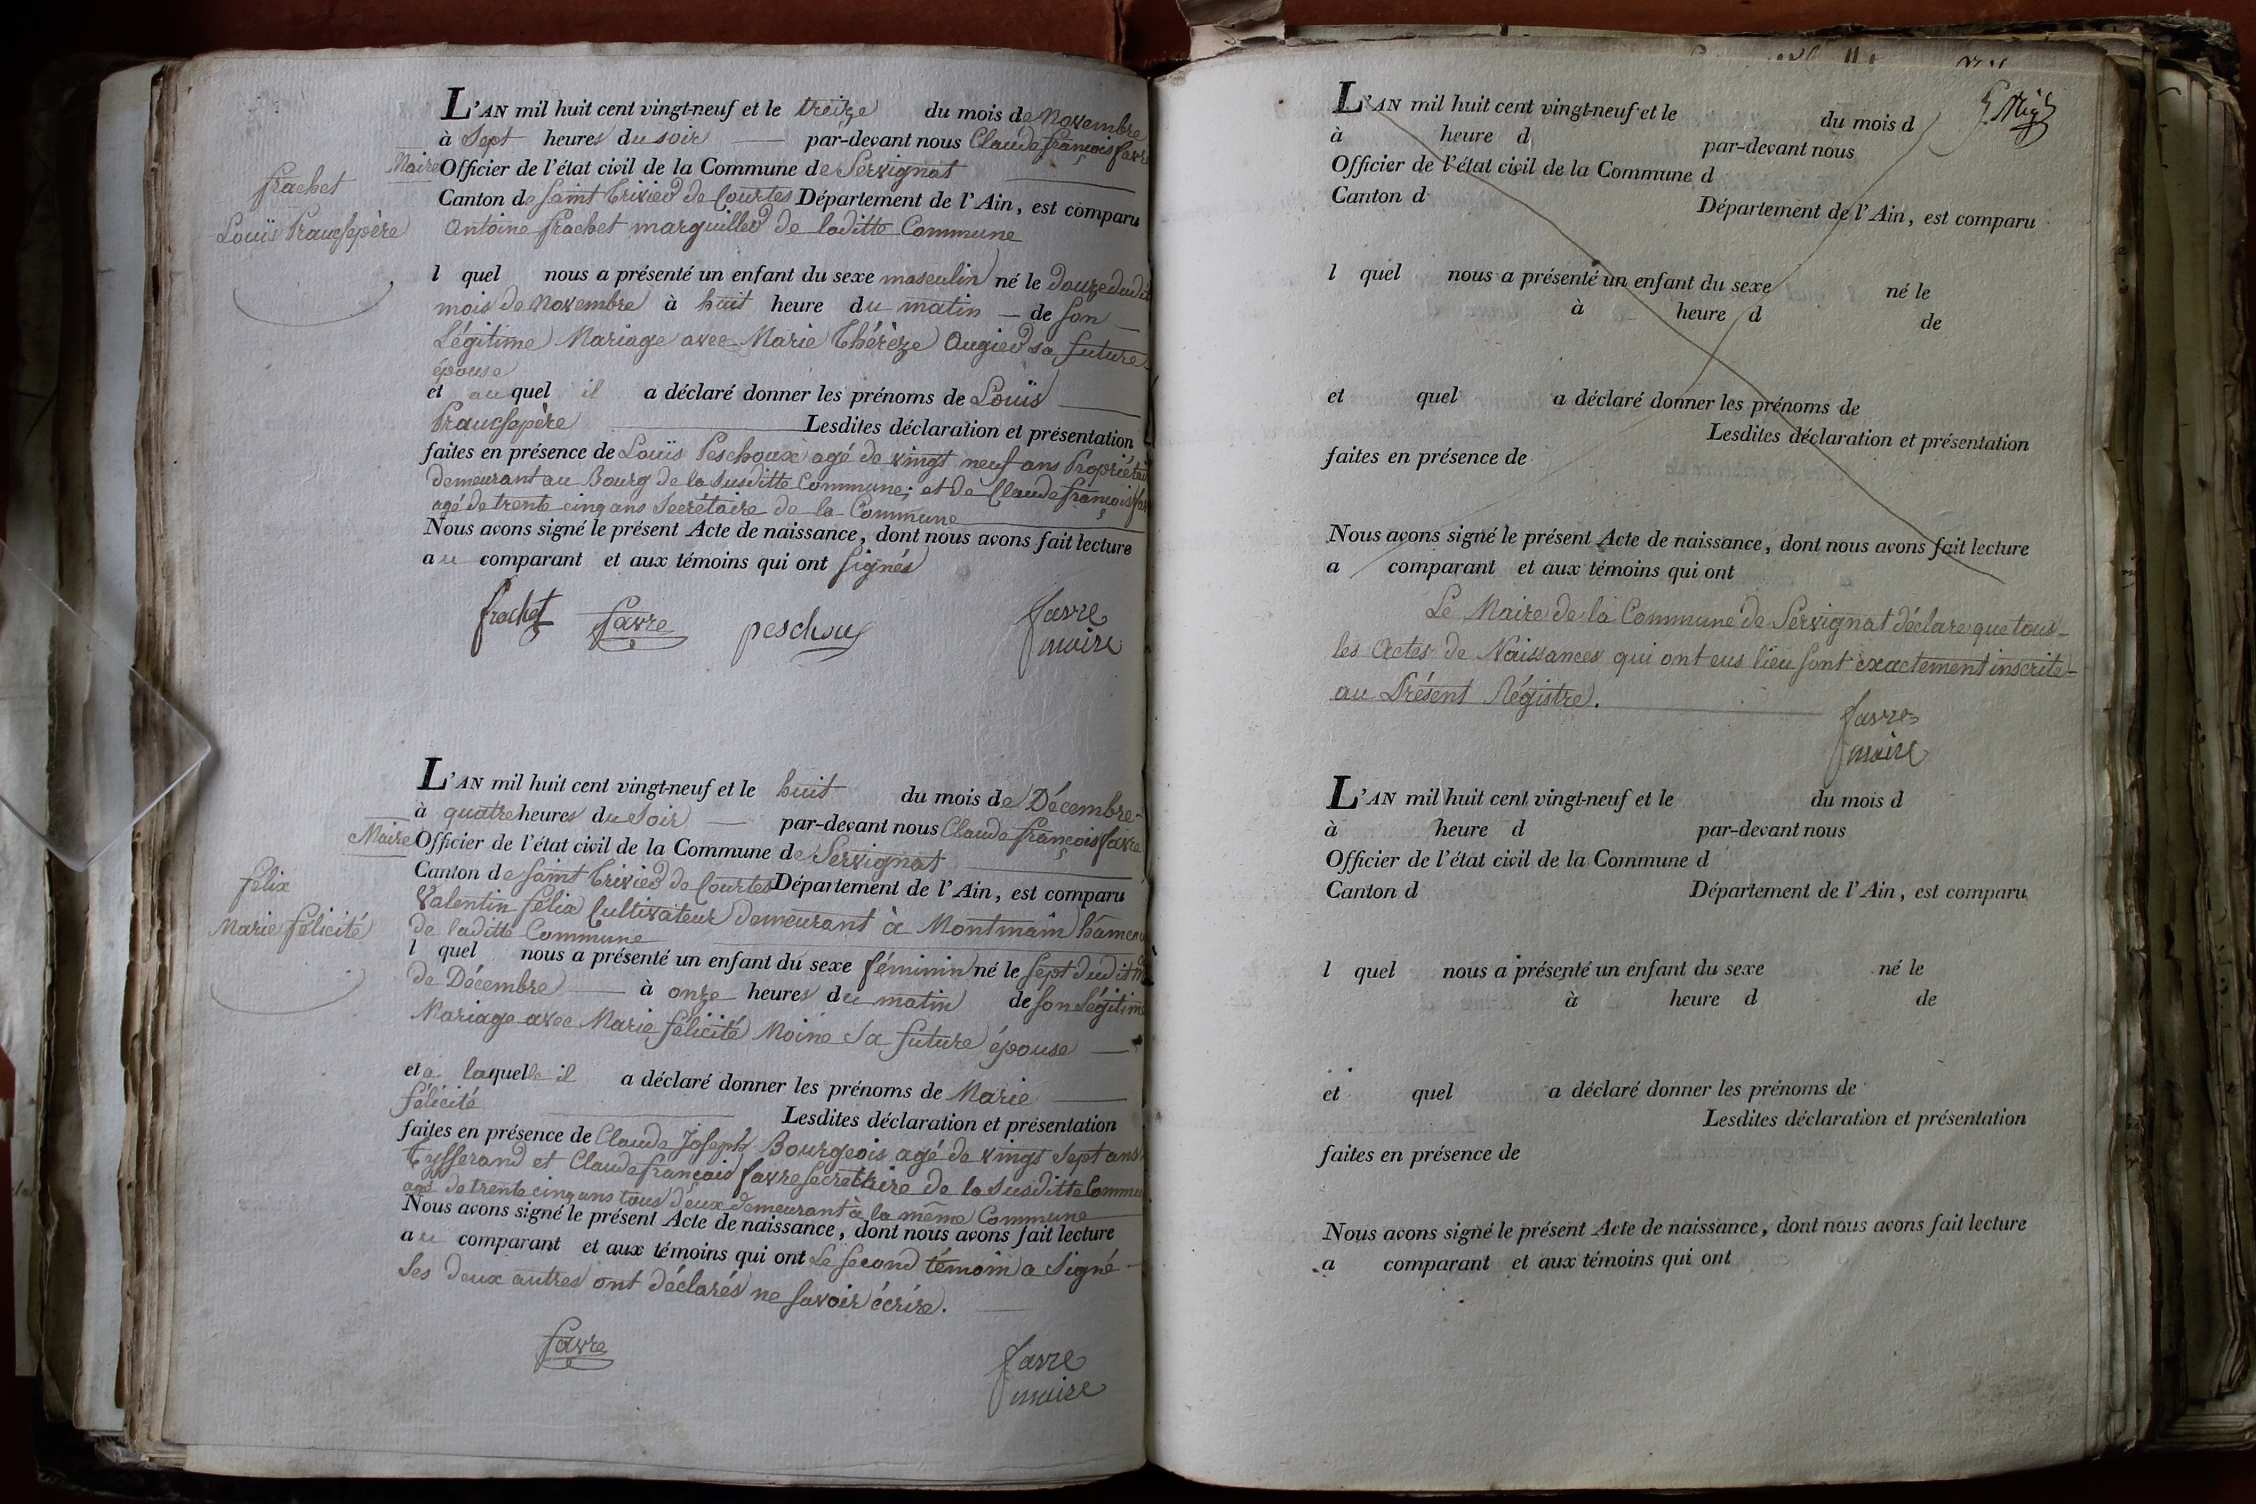 L'AN mil huit cent vingt-neuf et le treize du mois de Novembre
à Sept heures du soir par-devant nous Claude françois favre
Maire Officier de l'état civil de la Commune de Servignat
Canton de Saint Trivier de Courtes Département de l'Ain, est comparu
Antoine frachet marguiller de laditte Commune
frachet
Louïs
l quel nous a présenté un enfant du sexe masculin né le douze dudit
mois de Novembre à huit heure du matin — de son
Légitime Mariage avec Marie Thérèze Augier sa future
épouse
et au quel il a déclaré donner les prénoms de Louïs
Lesdites déclaration et présentation
faites en présence de Louïs Peschoux agé de vingt neuf ans Propriétaire
demeurant au Bourg de la Susditte Commune; et de Claude françois favre
agé de trente cinq ans Secrétaire de la Commune
Nous avons signé le présent Acte de naissance, dont nous avons fait lecture
au comparant et aux témoins qui ont signés
frachet favre peschoux favre
maire
L'AN mil huit cent vingt-neuf et le huit du mois de Décembre
à quatre heures du Soir par-devant nous Claude françois favre
Maire Officier de l'état civil de la Commune de Servignat
Canton de Saint Trivier de Courtes Département de l'Ain, est comparu
Valentin félix Cultivateur demeurant à Montmain hâmeau
de laditte Commune
félix
Marie félicité
l quel nous a présenté un enfant du sexe féminin né le Sept dudit mois
de Décembre à onze heures du matin de son Légitime
Mariage avec Marie félicité Moine Sa future épouse
et a laquelle il a déclaré donner les prénoms de Marie
félicité Lesdites déclaration et présentation
faites en présence de Claude Joseph Bourgeois agé de vingt Sept ans
Tysserand et Claude françois favre secrettaire de la Susditte Commune
agé de trente cinq ans tous deux demeurant à la même Commune
Nous avons signé le présent Acte de naissance, dont nous avons fait lecture
au comparant et aux témoins qui ont Le second témoin a Signé
Les deux autres ont déclarés ne savoir écrire.
favre favre
maire
L'AN mil huit cent vingt-neuf et le du mois d
à heure d par-devant nous
Officier de l'état civil de la Commune d
Canton d Département de l'Ain, est comparu
l quel nous a présenté un enfant du sexe né le
à heure d de
et quel a déclaré donner les prénoms de
Lesdites déclaration et présentation
faites en présence de
Nous avons signé le présent Acte de naissance, dont nous avons fait lecture
a comparant et aux témoins qui ont
Le Maire de la Commune de Servignat déclare que tous
les Actes de Naissances qui ont eus lieu sont exactement inscrite
au Présent Régistre.
favre
maire
L'AN mil huit cent vingt-neuf et le du mois d
à heure d par-devant nous
Officier de l'état civil de la Commune d
Canton d Département de l'Ain, est comparu
l quel nous a présenté un enfant du sexe né le
à heure d de
et quel a déclaré donner les prénoms de
Lesdites déclaration et présentation
faites en présence de
Nous avons signé le présent Acte de naissance, dont nous avons fait lecture
a comparant et aux témoins qui ont